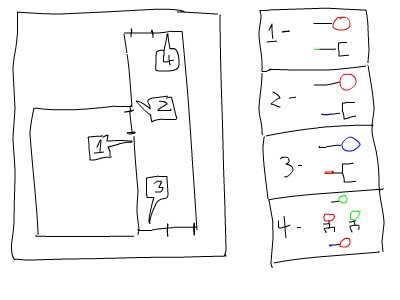 4
2
1
3
1-
2-
3-
4-